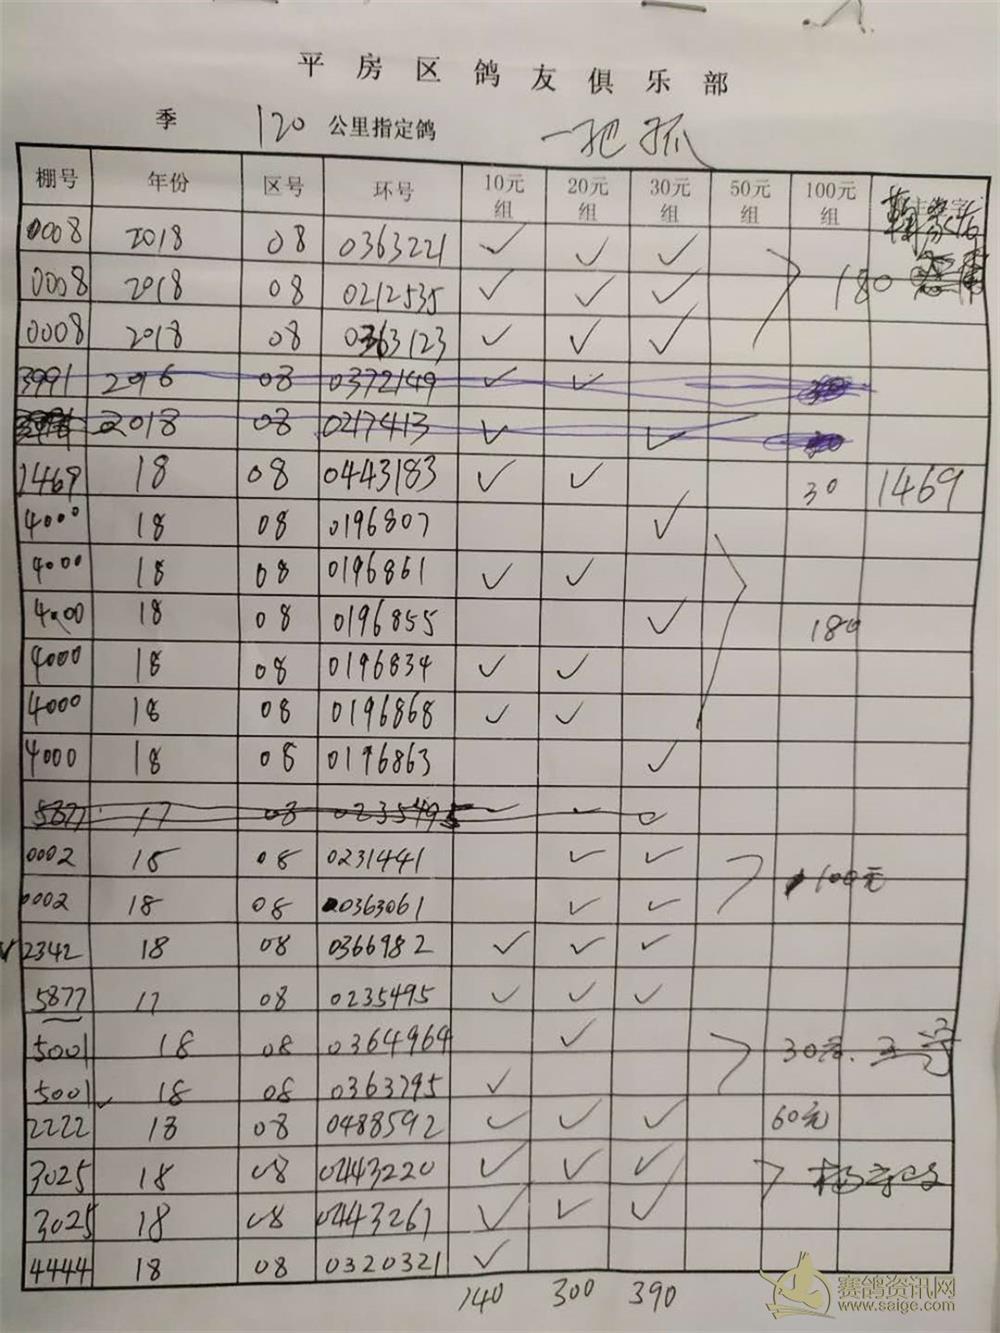 平房区鸽友俱乐部
季 120 公里指定鸽 一把抓
棚号 年份 区号 环号 10元组 20元组 30元组 50元组 100元组
0008 2018 08 0363221 ✓ ✓ ✓
0008 2018 08 0212535 ✓ ✓ ✓ 180
0008 2018 08 0363123 ✓ ✓ ✓
3991 2016 08 0372149 ✓ ✓
2018 08 0217413 ✓ ✓
1469 18 08 0443183 ✓ ✓ 30 1469
4000 18 08 0196807 ✓
4000 18 08 0196861 ✓ ✓
4000 18 08 0196855 ✓ 180
4000 18 08 0196834 ✓ ✓
4000 18 08 0196868 ✓ ✓
4000 18 08 0196863 ✓
5877 17 08 0235495
0002 18 08 0231441 ✓ ✓ 100元
0002 18 08 0363061 ✓ ✓
✓ 2342 18 08 0366982 ✓ ✓ ✓
5877 17 08 0235495 ✓ ✓ ✓
5001 18 08 0364964 ✓ 30元
5001 18 08 0363795 ✓
2222 18 08 0488592 ✓ ✓ ✓ 60元
3025 18 08 0443220 ✓ ✓ ✓
3025 18 08 0443267 ✓ ✓ ✓
4444 18 08 0320321 ✓
140 300 390
赛鸽资讯网
www.saige.com